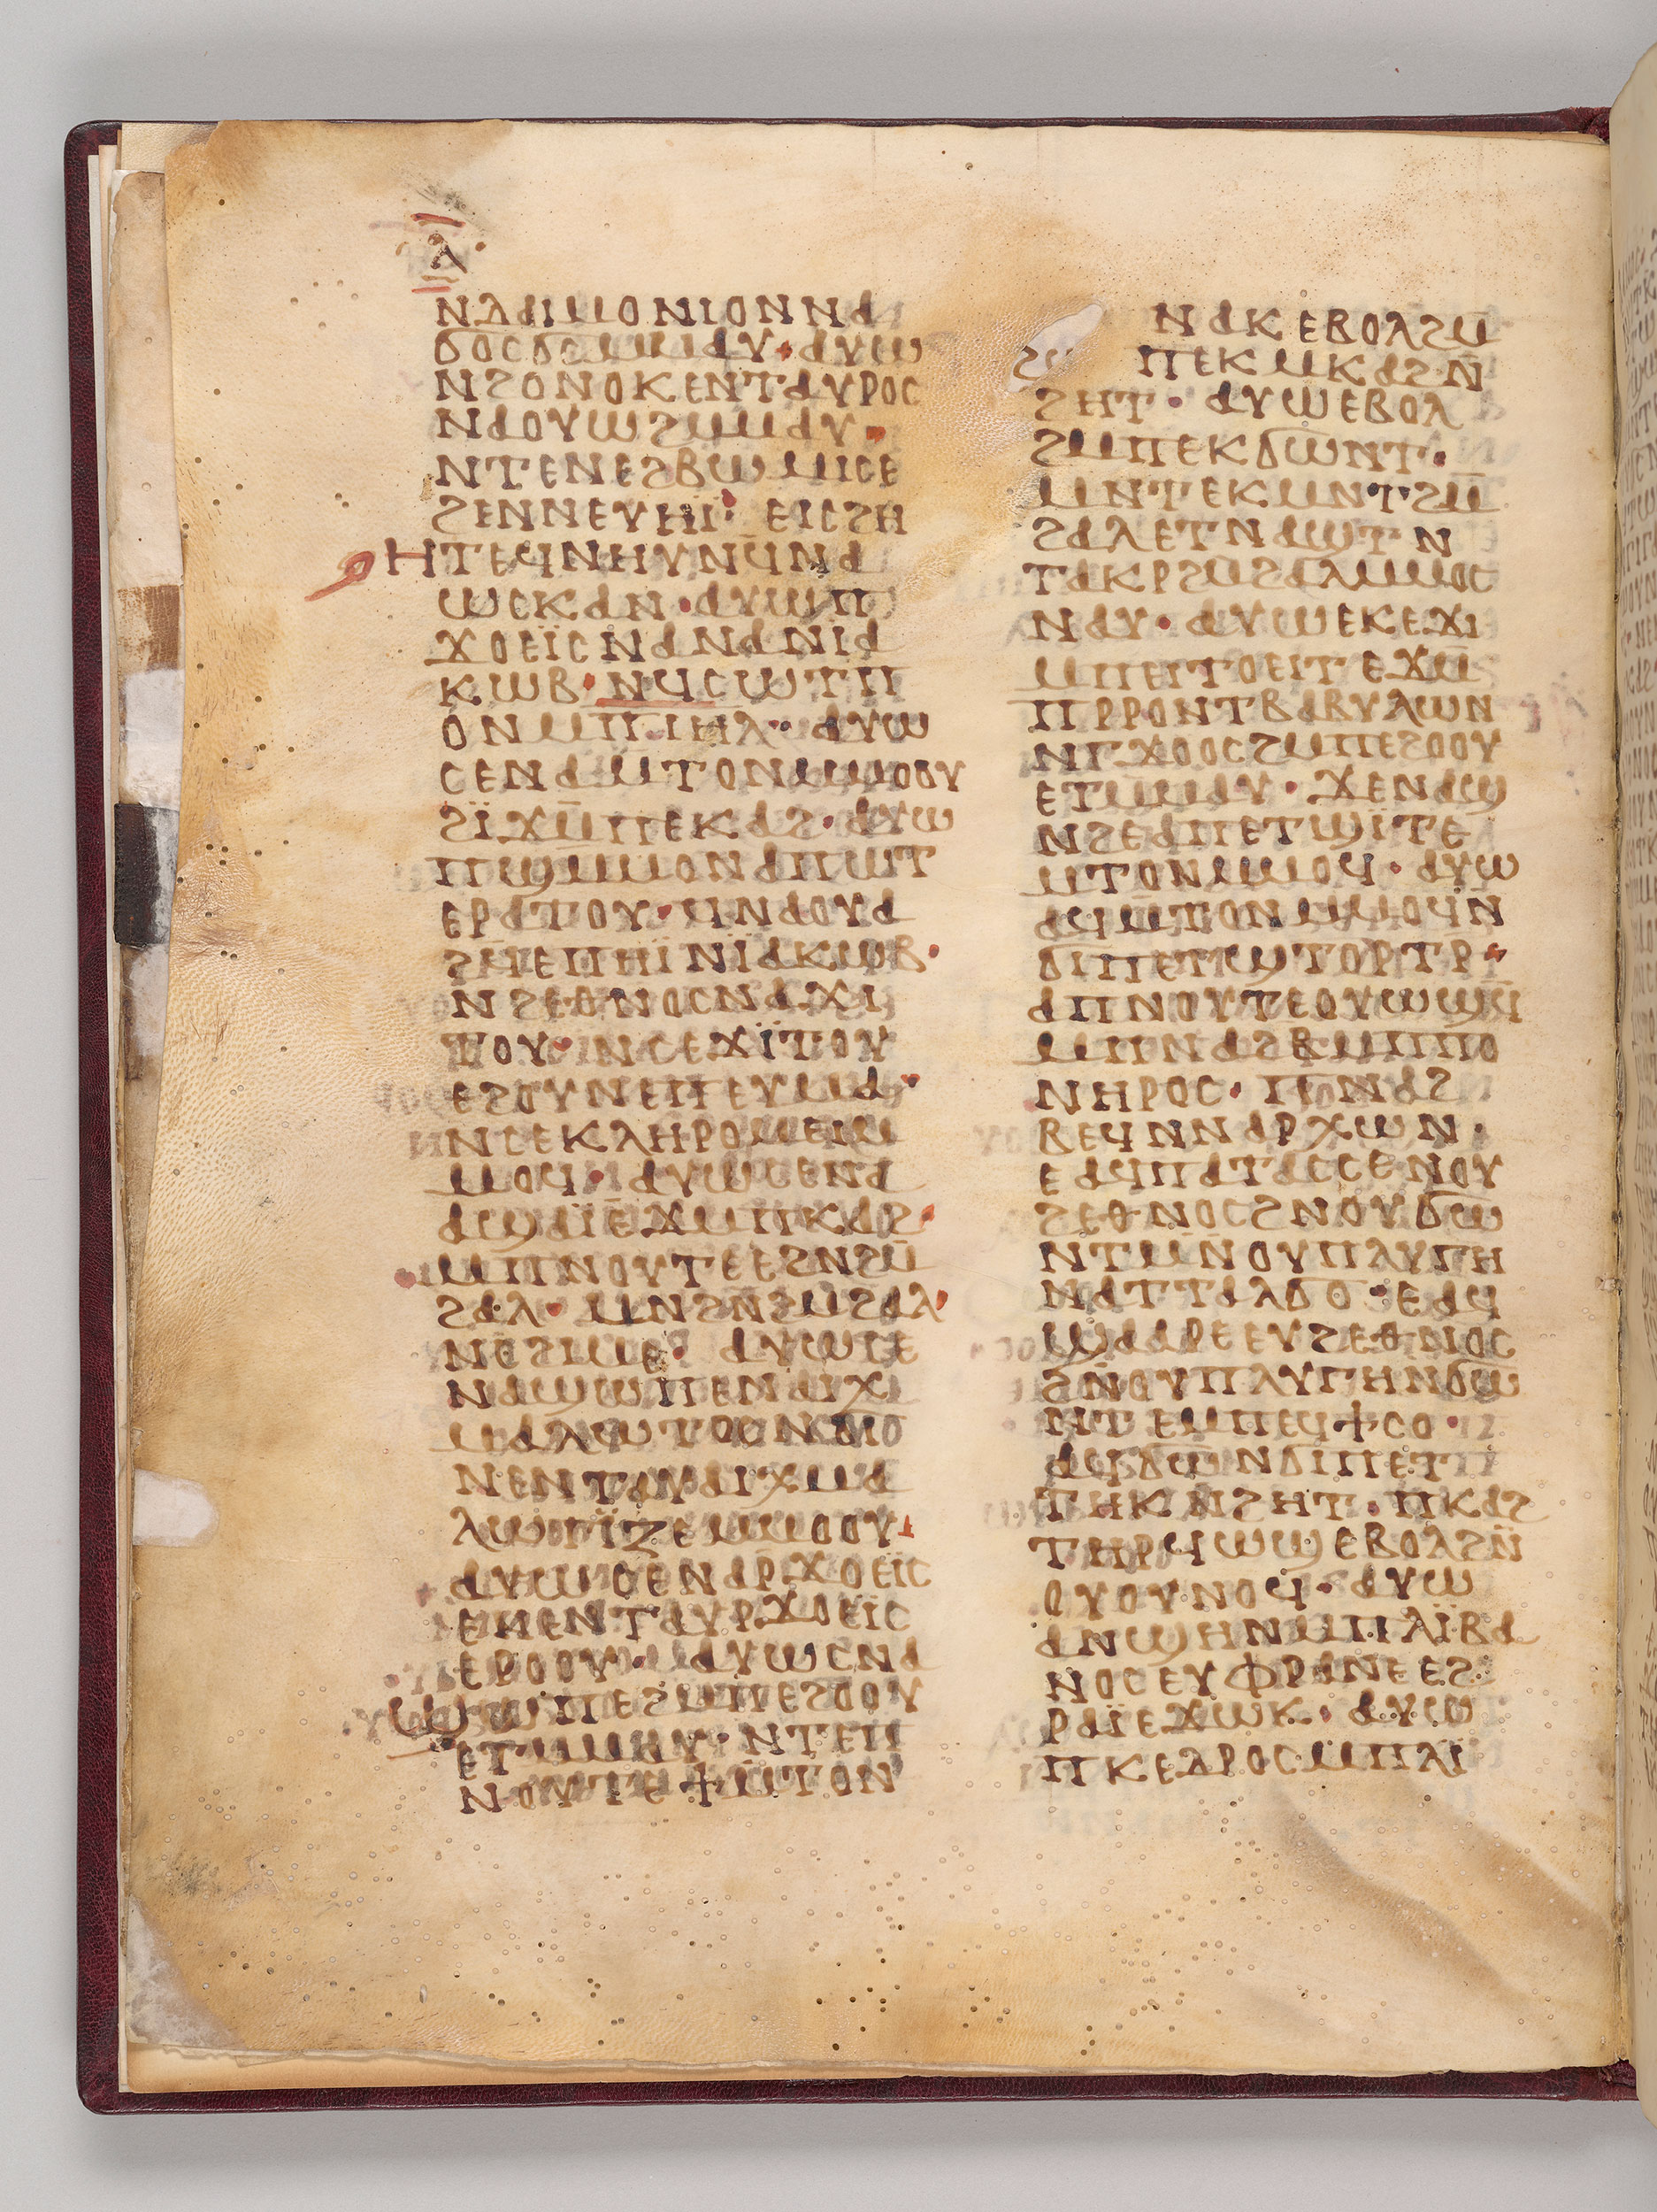 ⲗ
ⲛⲇⲁⲓⲙⲟⲛⲓⲟⲛⲛⲁ
ϭⲟⲥϭⲥⲙⲙⲁⲩ· ⲁⲩⲱ
ⲛϩⲟⲛⲟⲕⲉⲛⲧⲁⲩⲣⲟⲥ
ⲛⲁⲟⲩⲱϩⲙⲙⲁⲩ·
ⲛⲧⲉⲛⲉϩⲃⲱⲙⲓⲥⲉ
ϩⲉⲛⲛⲉⲩⲏⲓ̈· ⲉⲓⲥϩⲏ
ⲏⲧⲉϥⲛⲏⲩⲛϥⲛⲁ
ⲱⲥⲕⲁⲛ· ⲁⲩⲱⲡ
ϫⲟⲉⲓ̈ⲥⲛⲁⲛⲁⲛⲓⲁ
ⲕⲱⲃ· ⲛϥⲥⲱⲧⲡ
ⲟⲛⲙⲡⲓⲏⲗ· ⲁⲩⲱ
ⲥⲉⲛⲁⲙⲧⲟⲛⲙⲙⲟⲟⲩ
ϩⲓ̈ϫⲙ̄ⲡⲉⲕⲁϩ· ⲁⲩⲱ
ⲡϣⲙⲙⲟⲛⲁⲡⲱⲧ
ⲉⲣⲁⲧⲟⲩ· ϥⲛⲁⲟⲩⲁ
ϩϥⲉⲡⲏⲓ̈ⲛⲓ̈ⲁⲕⲱⲃ·
ⲛϩⲉⲑⲛⲟⲥⲛⲁϫⲓ
ⲧⲟⲩ· ⲛⲥⲉϫⲓ̈ⲧⲟⲩ
ⲉϩⲟⲩⲛⲉⲡⲉⲩⲙⲁ·
ⲛⲥⲉⲕⲗⲏⲣⲟⲙⲉⲓⲙ
ⲙⲟϥ· ⲁⲩⲱⲥⲉⲛⲁ
ⲁϣⲁⲓ̈ⲉϫⲙⲡⲕⲁϩ
ⲙⲡⲛⲟⲩⲧⲉⲉϩⲛϩⲙ̄
ϩⲁⲗ· ⲙⲛϩⲛ̄ϩⲙϩⲁⲗ
ⲛⲥϩⲓⲙⲉ· ⲁⲩⲱⲥⲉ
ⲛⲁϣⲱⲡⲉⲛⲁⲓⲭ
ⲙⲁⲗⲱⲧⲟⲥⲛϭⲓ
ⲛⲉⲛⲧⲁⲩⲁⲓⲭⲙⲁ
ⲗⲱⲧⲓ̈ⲍⲉⲙⲙⲟⲟⲩ
ⲁⲩⲱⲥⲉⲛⲁⲣϫⲟⲉⲓ̈ⲥ
ⲉⲛⲉⲛⲧⲁⲩⲣϫⲟⲉⲓ̈ⲥ
ⲉⲣⲟⲟⲩ· ⲁⲩⲱⲥⲛⲁ
ϣⲱⲡⲉϩⲙⲡⲉϩⲟⲟⲩ
ⲉⲧⲙⲙⲁⲩ· ⲛⲧⲉⲡ
ⲛⲟⲩⲧⲉϯⲙⲧⲟⲛ
ⲛⲁⲕⲉⲃⲟⲗϩⲙ
ⲡⲉⲕⲙⲕⲁϩⲛ̄
ϩⲏⲧ· ⲁⲩⲱⲉⲃⲟⲗ
ϩⲙⲡⲉⲕϭⲱⲛⲧ·
ⲙⲛⲧⲉⲕⲙⲛⲧϩⲙ̄
ϩⲁⲗⲉⲧⲛⲁϣⲧⲛ
ⲧⲁⲕⲣϩⲙϩⲁⲗⲙⲙⲟⲥ
ⲛⲁⲩ· ⲁⲩⲱⲉⲕⲉϫⲓ
ⲙⲡⲉⲓⲧⲟⲉⲓⲧⲉϫⲙ
ⲡⲣⲣⲟⲛⲧⲃⲁⲃⲩⲗⲱⲛ
ⲛⲅϫⲟⲟⲥϩⲙⲡⲉϩⲟⲟⲩ
ⲉⲧⲙⲙⲁⲩ· ϫⲉⲛⲁϣ
ⲛϩⲉⲁⲡⲉⲧϣⲓⲧⲉ
ⲙⲧⲟⲛⲙⲙⲟϥ· ⲁⲩⲱ
ⲁϥⲙⲧⲟⲛⲙⲙⲟϥⲛ̄
ϭⲓⲡⲉⲧϣⲧⲟⲣⲧⲣ·
ⲁⲡⲛⲟⲩⲧⲉⲟⲩⲱϣϥ
ⲙⲡⲛⲁϩⲃⲙⲡⲡⲟ
ⲛⲏⲣⲟⲥ· ⲡⲛⲁϩ
ⲃⲉϥⲛⲛⲁⲣⲭⲱⲛ·
ⲉⲁϥⲡⲁⲧⲁⲥⲥⲉⲛⲟⲩ
ϩⲉⲑⲛⲟⲥϩⲛⲟⲩϭⲱ
ⲛⲧⲙⲛ̄ⲟⲩⲡⲗⲩⲅⲏ
ⲛⲁⲧⲧⲁⲗϭⲟ· ⲉⲁϥ
ϣⲁⲁⲣⲉⲉⲩϩⲉⲑⲛⲟⲥ
ϩⲛ̄ⲟⲩⲡⲗⲩⲅⲏⲛϭⲱ
ⲛⲧⲉⲙⲡⲉϥϯⲥⲟ·
ⲁϥϭⲱⲛϭⲓⲡⲉⲧ
ⲧⲏⲕⲛϩⲏⲧ· ⲡⲕⲁϩ
ⲧⲏⲣϥⲱϣⲉⲃⲟⲗϩⲛ̄
ⲟⲩⲟⲩⲛⲟϥ· ⲁⲩⲱ
ⲁⲛϣⲏⲛⲙⲡⲗⲓ̈ⲃⲁ
ⲛⲟⲥⲉⲩⲫⲣⲁⲛⲉⲉϩ
ⲣⲁⲓ̈ⲉϫⲱⲕ· ⲁⲩⲱ
ⲡⲕⲉⲇⲣⲟⲥⲙⲡⲗⲓ